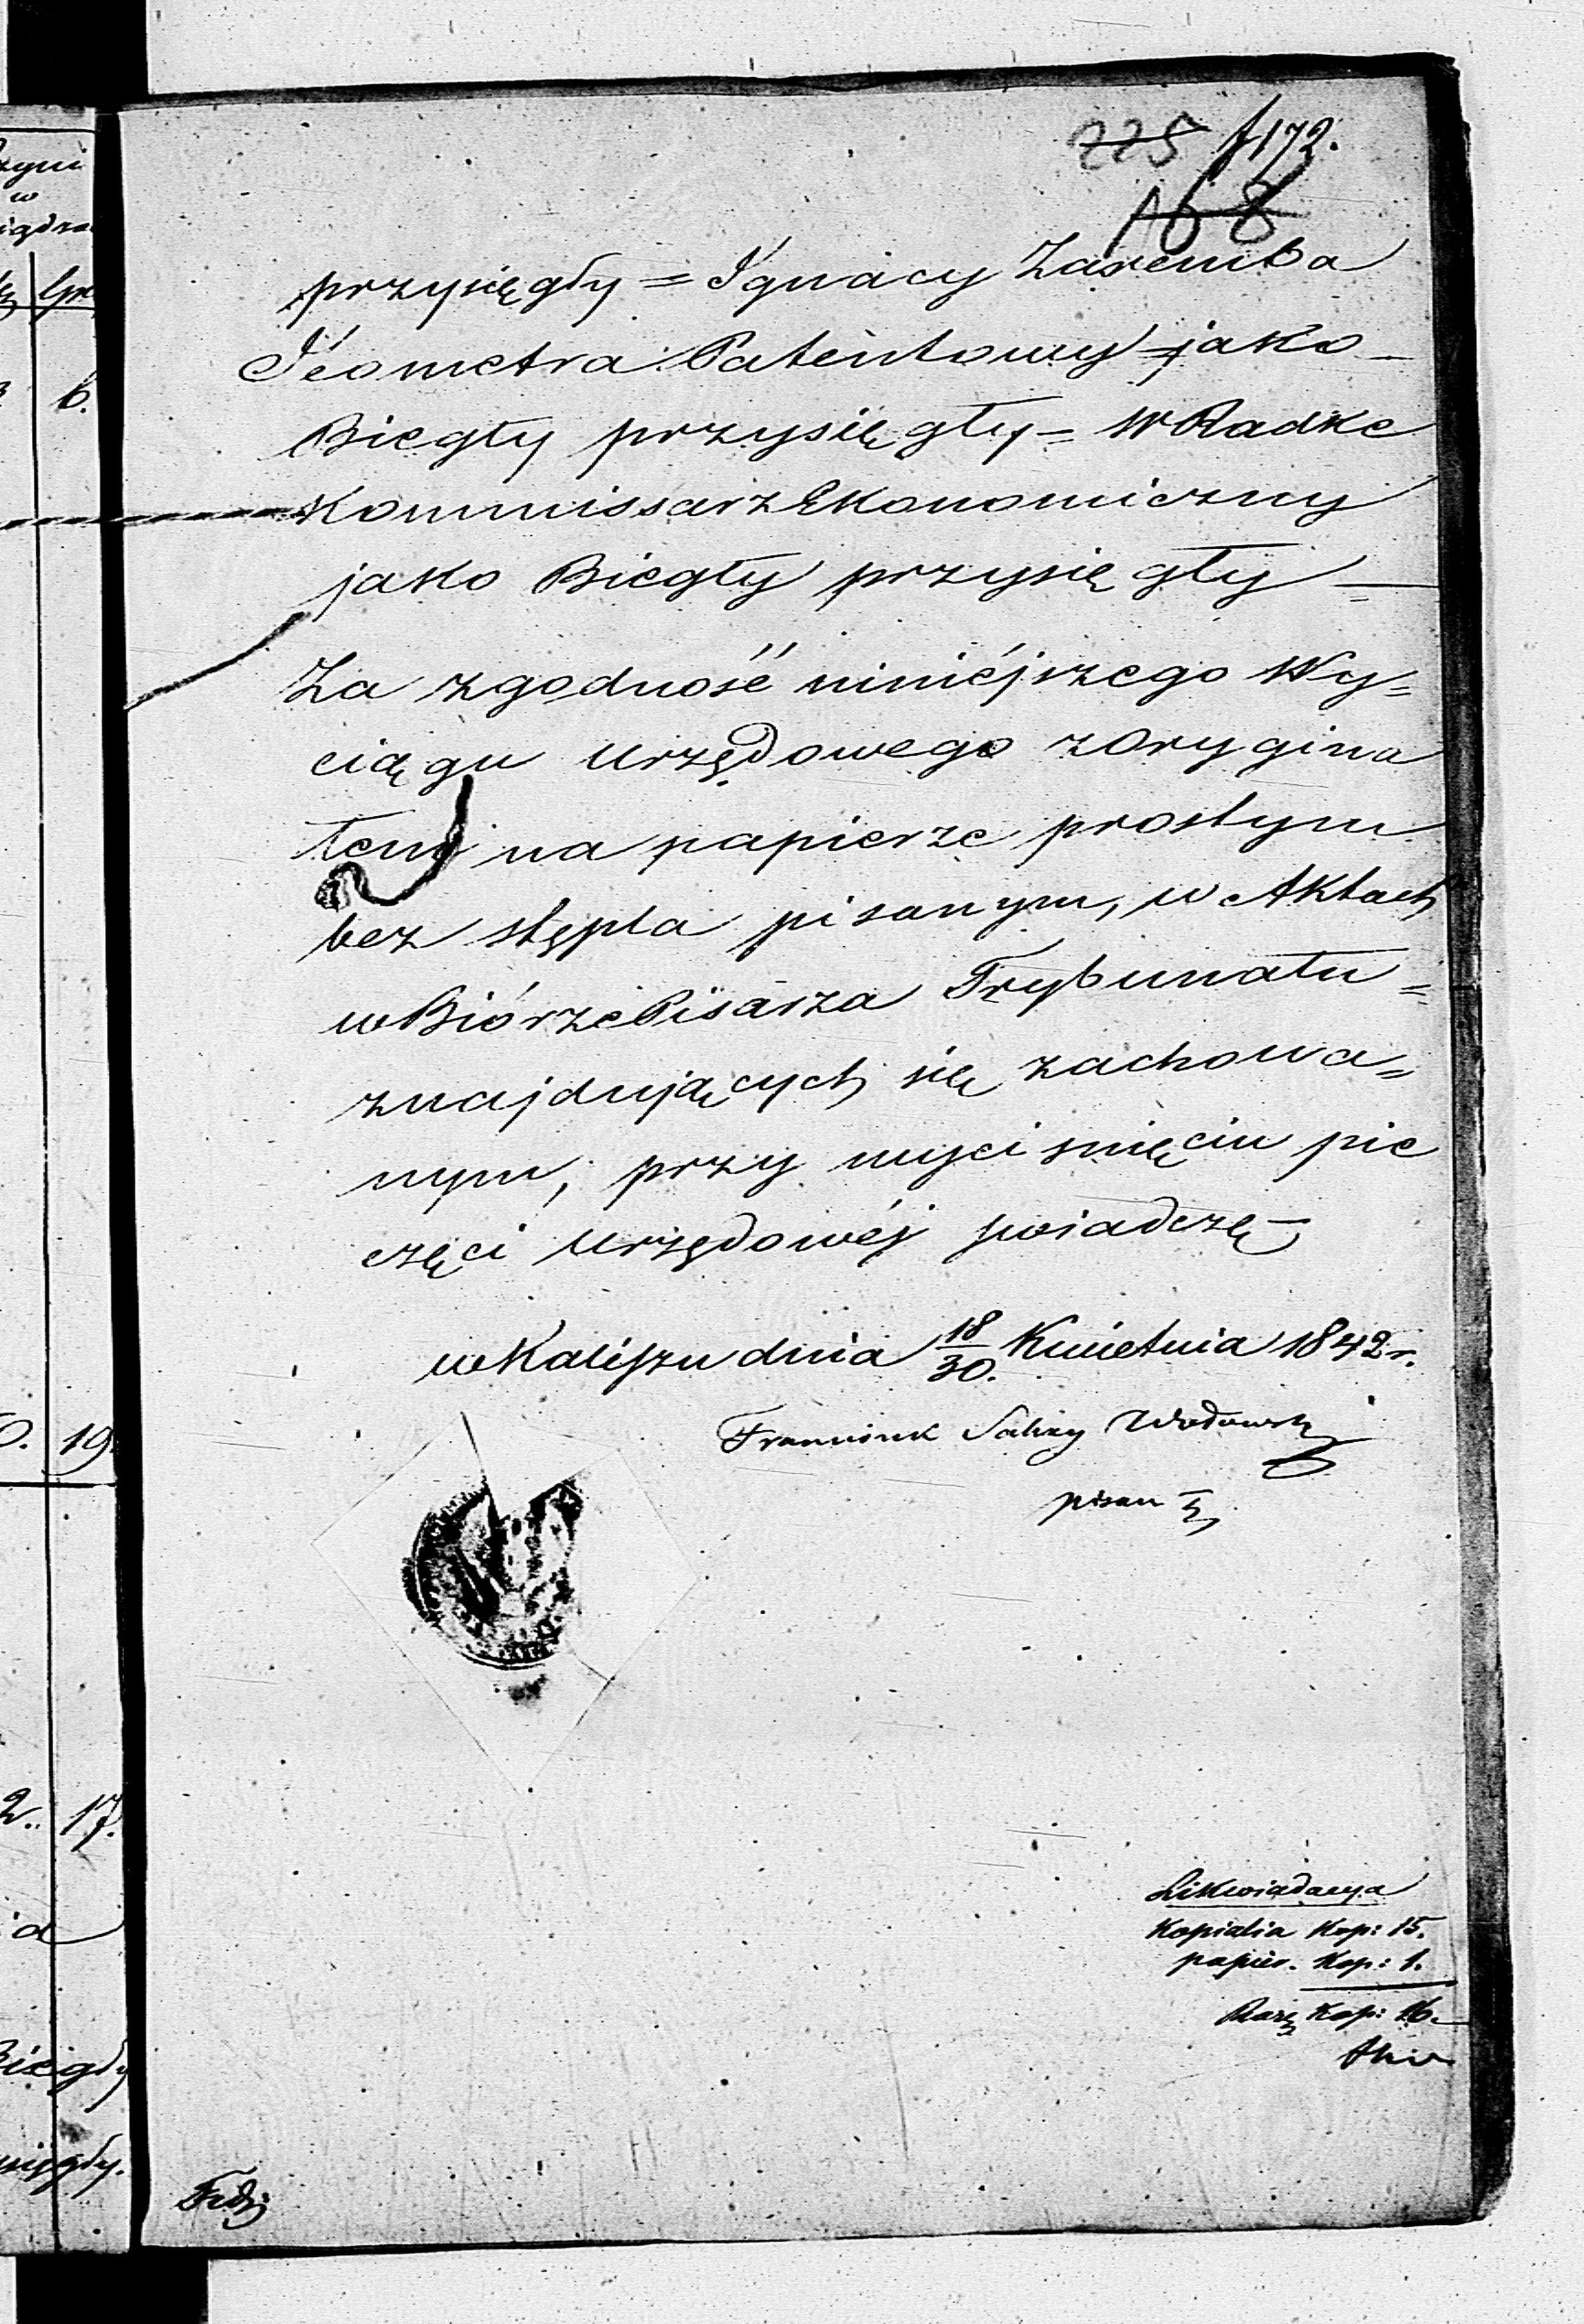 225 f172.
168
przysięgły = Ignacy Zaremba
Jeometra Patentowy jako
Biegły przysięgły = W Radke
Kommissarz Ekonomiczny
jako Biegły przysięgły =
Za zgodność niniéjszego Wy=
ciągu Urzędowego z Orygina
łem na papierze prostym
bez stępla pisanym, w Aktach
w Biórze Pisarza Trybunału =
znajdujących się zachowa=
nym, przy wyciśnięciu pie
częci Urzędowéj świadczę –
w Kaliszu dnia 18/30. Kwietnia 1842 r.
Franciszek Salezy
pisarz T
Likwidacya
Kopialia Kop: 15.
papier. Kop: 1.
Razem Kop: 16.
zyni
w
6.
19.
2. 17.
ia
Biegły
sięgły.